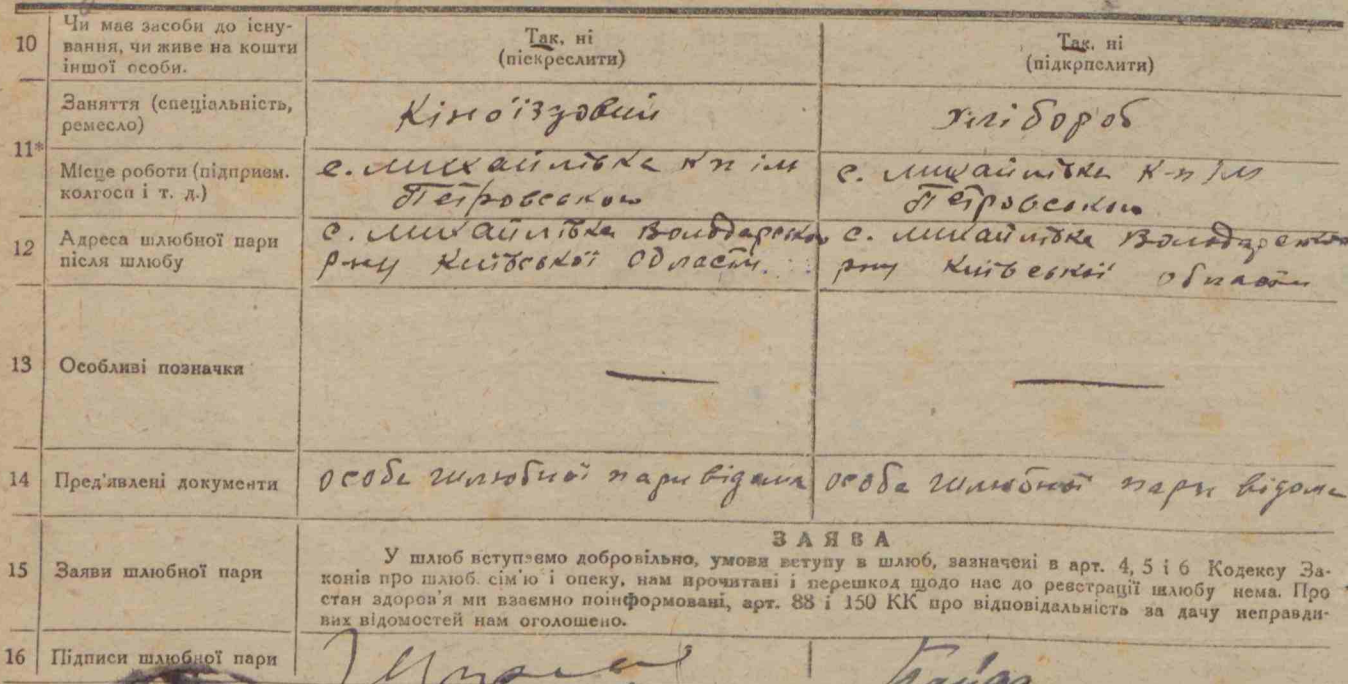 10 Чи має засоби до існу-
вання, чи живе на кошти
іншої особи.
Так, ні
(піскреслити)
Так, ні
(підкрпслити)
11*
Заняття (спеціальність,
ремесло)
Кіноїздовий
Хлібороб
Місце роботи (підприєм.
колгосп і т. д.)
с. Михайлівка к-п ім
Петровського
с. Михайлівка к-п ім
Петровського
12 Адреса шлюбної пари
після шлюбу
с. Михайлівка Володарсько
р-ну Київської області.
с. Михайлівка Володарсько
р-ну Київської області
13 Особливі позначки
14 Пред'явлені документи
особа шлюбної пари відома
особа шлюбної пари відома
15 Заяви шлюбної пари
ЗАЯВА
У шлюб вступаємо добровільно, умови вступу в шлюб, зазначені в арт. 4, 5 і 6 Кодексу За-
конів про шлюб. сім'ю і опеку, нам прочитані і перешкод щодо нас до реєстрації шлюбу нема. Про
стан здоров'я ми взаємно поінформовані, арт. 88 і 150 КК про відповідальність за дачу неправди-
вих відомостей нам оголошено.
16 Підписи шлюбної пари